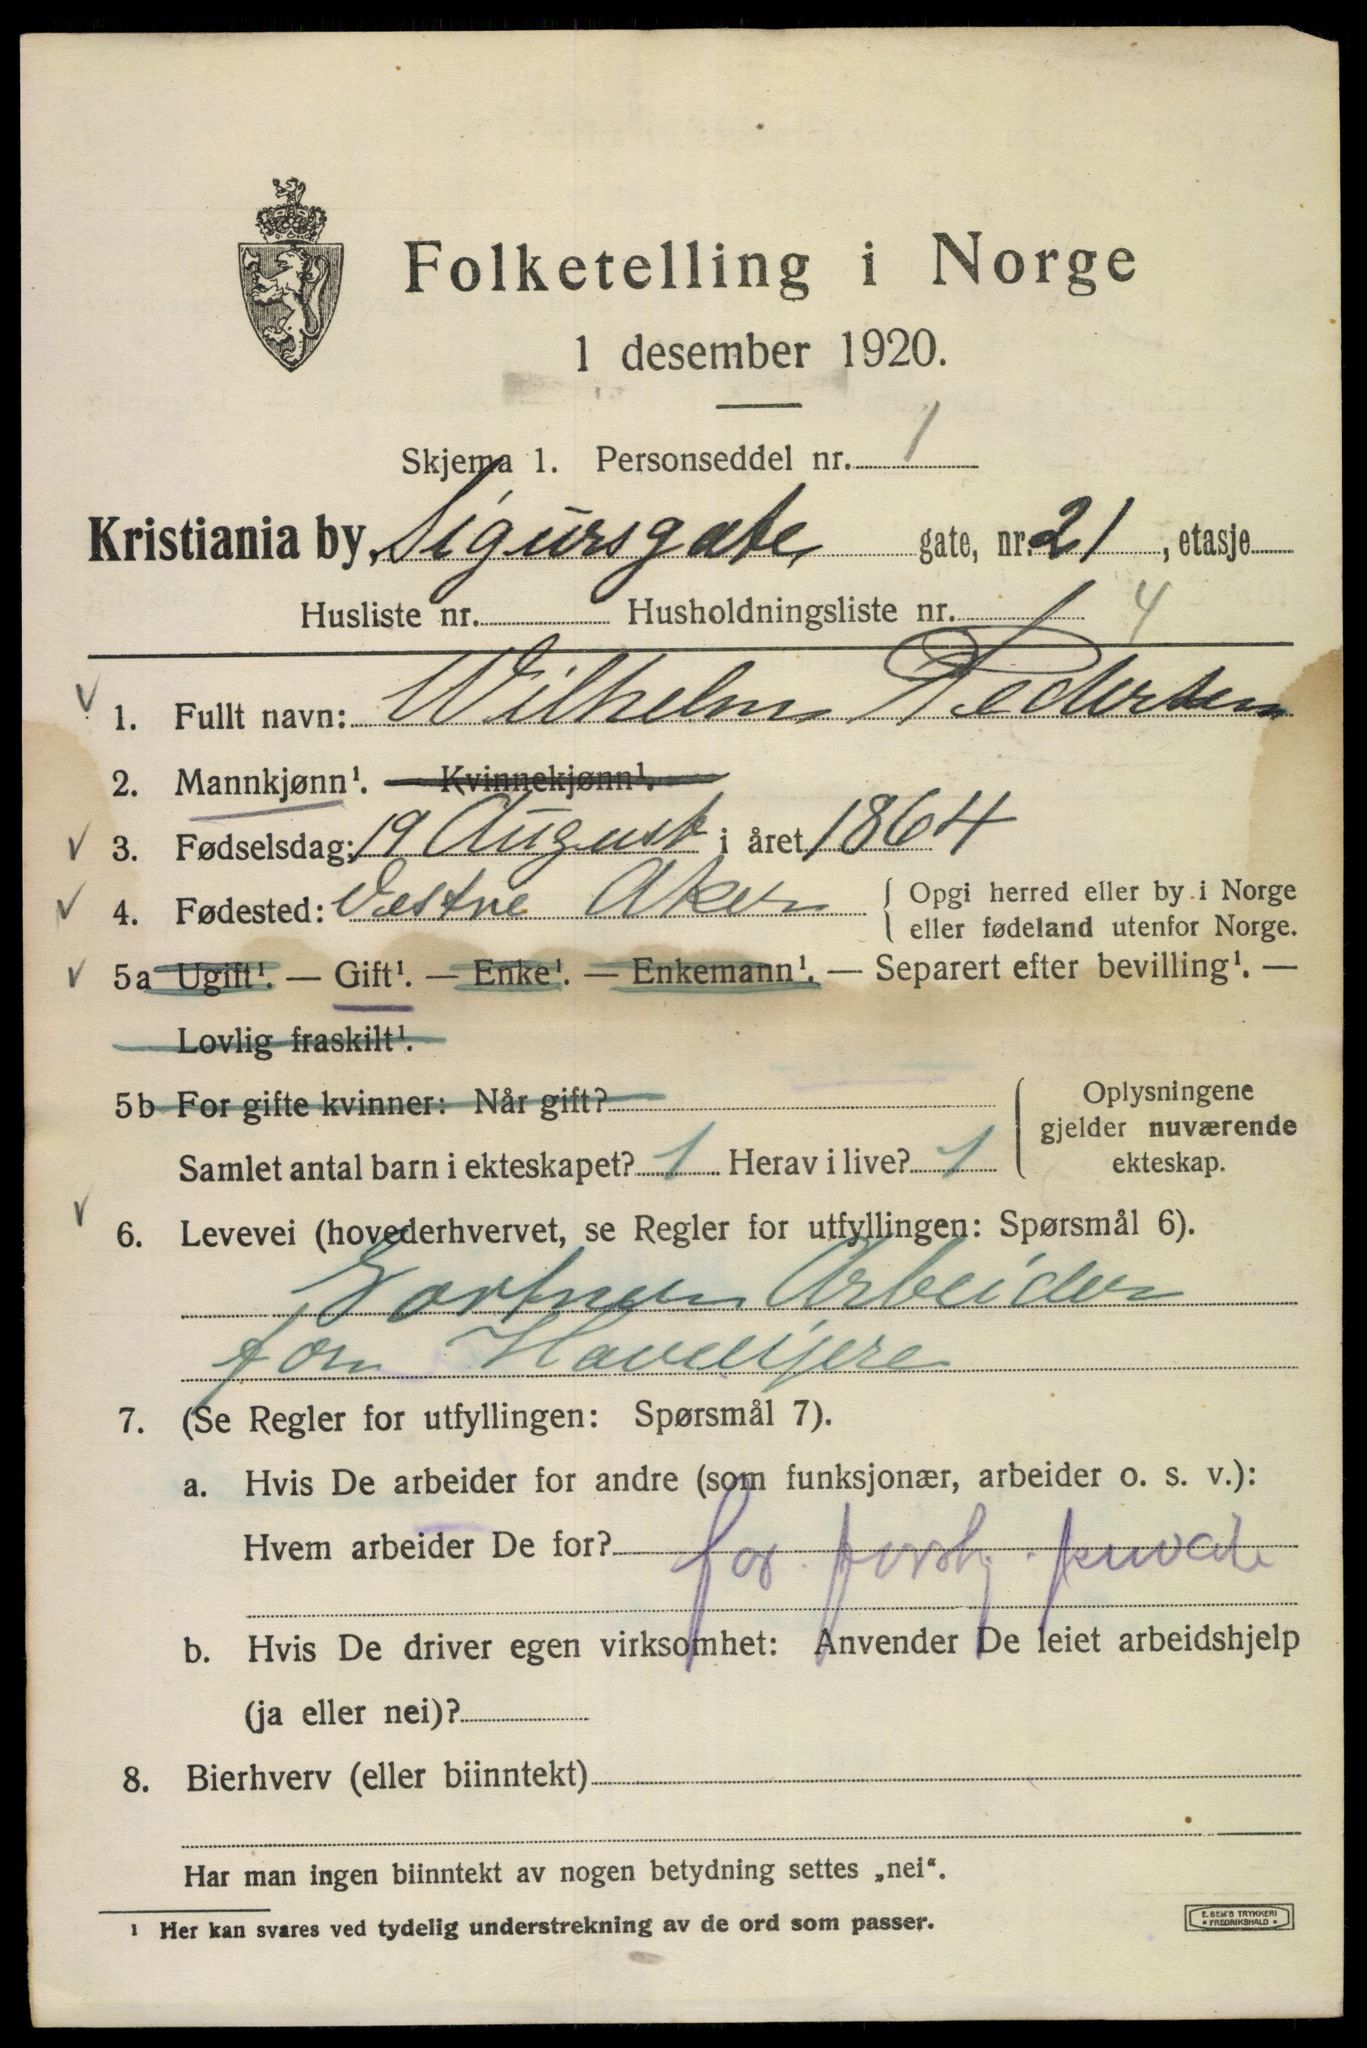 Folketelling i Norge
1 desember 1920.
Skjema 1. Personseddel nr. 1
Kristiania by, Sigursgate gate, nr. 21, etasje
Husliste nr. Husholdningsliste nr. 4
1. Fullt navn: Wilhelm Pedersen
2. Mannkjønn¹. — Kvinnekjønn¹.
3. Fødselsdag: 19 August i året 1864
4. Fødested: Vestre Aker { Opgi herred eller by i Norge
eller fødeland utenfor Norge.
5a Ugift¹. — Gift¹. — Enke¹. — Enkemann¹. — Separert efter bevilling¹. —
Lovlig fraskilt¹.
5b For gifte kvinner: Når gift?
Samlet antal barn i ekteskapet? 1 Herav i live? 1
Oplysningene
gjelder nuværende
ekteskap.
6. Levevei (hovederhvervet, se Regler for utfyllingen: Spørsmål 6).
Gartner Arbeider
for Haveeijere
7. (Se Regler for utfyllingen: Spørsmål 7).
a. Hvis De arbeider for andre (som funksjonær, arbeider o. s. v.):
Hvem arbeider De for? for forskj. private
b. Hvis De driver egen virksomhet: Anvender De leiet arbeidshjelp
(ja eller nei)?
8. Bierhverv (eller biinntekt)
Har man ingen biinntekt av nogen betydning settes „nei“.
¹ Her kan svares ved tydelig understrekning av de ord som passer.
E. SEM'S TRYKKERI
FREDRIKSHALD